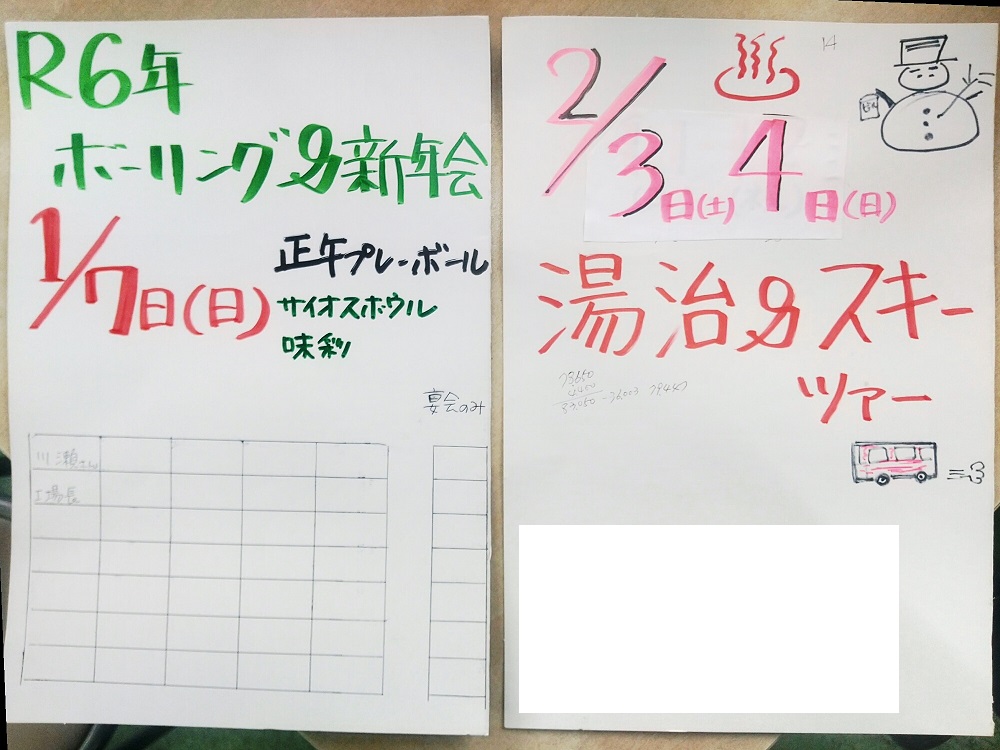 R6年
ボーリング&新年会
1/7日(日)
正午プレーボール
サイオスボウル
味彩
宴会のみ
川瀬さん
工場長
14
2/3日(土)4日(日)
湯治&スキー
ツアー